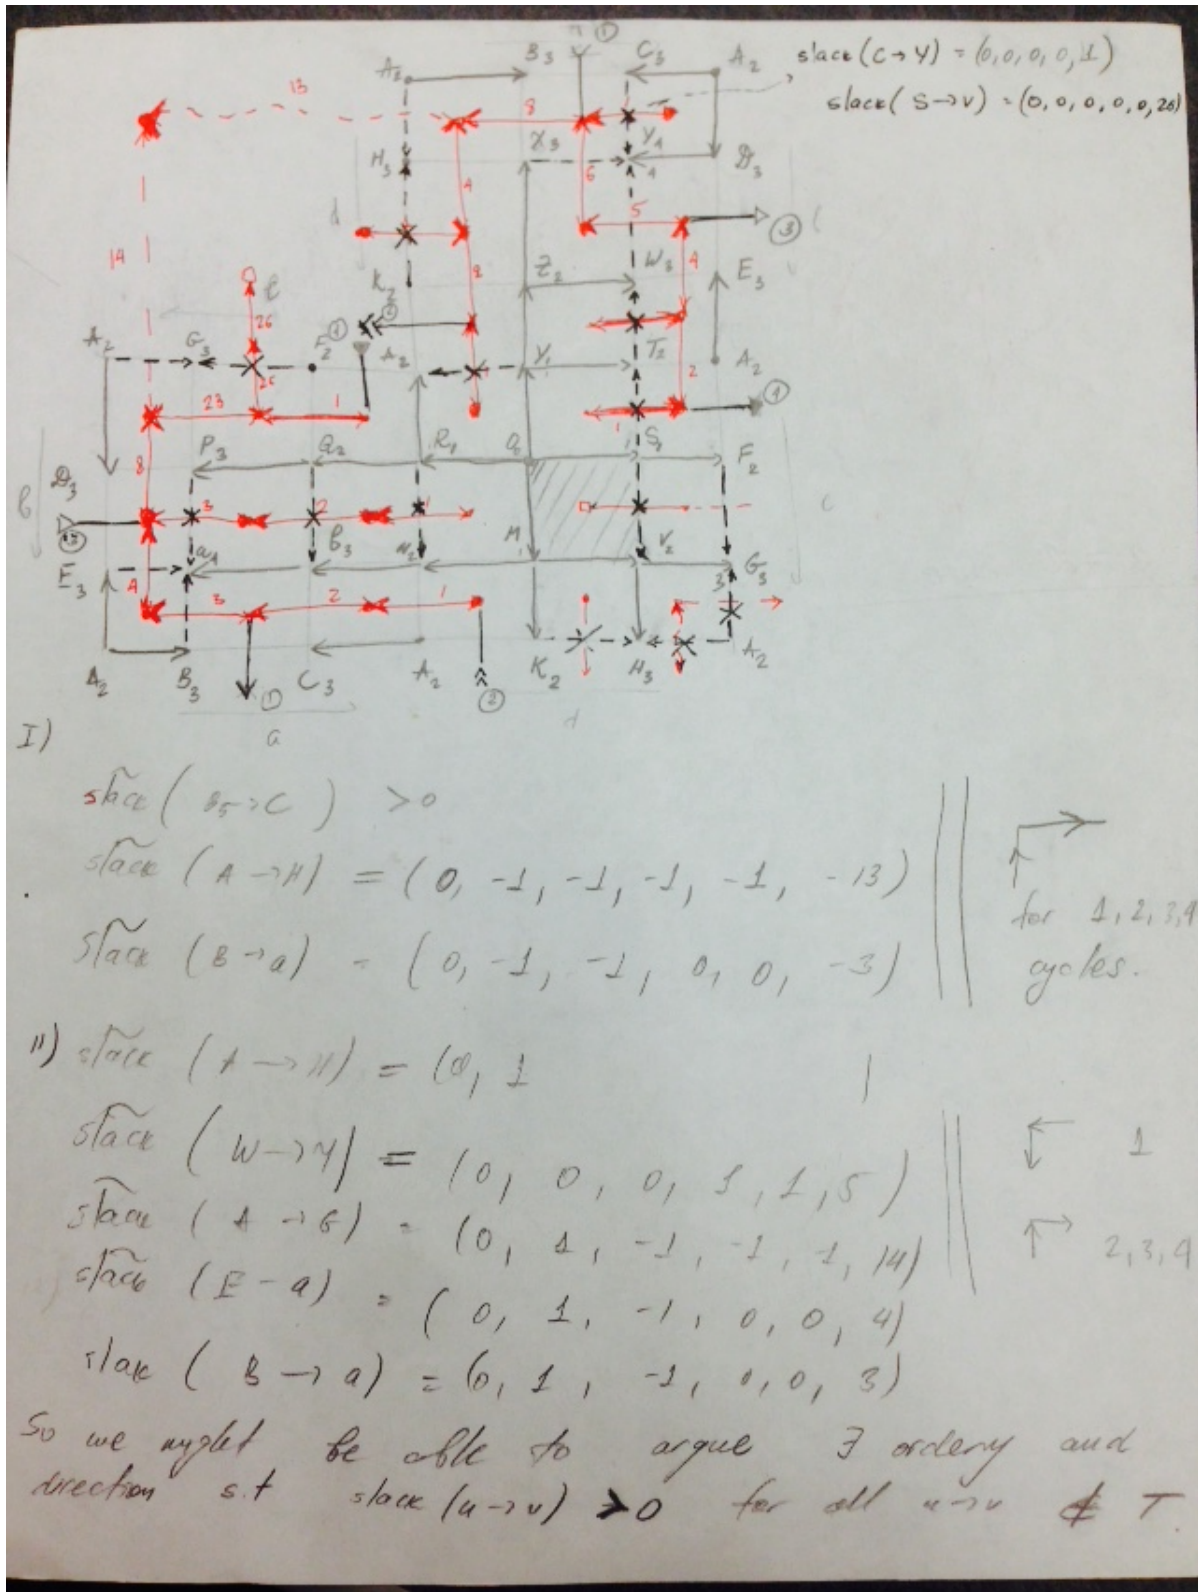 slack (C → Y) = (0,0,0,0,1)
slack (S → V) = (0,0,0,0,0,26)
A2 B3 C3 A2
13 8
H3 X3 Y4 D3
4 6
d 5 3
14
K2 Z2 W3 E3
2 4
e
26
A2 G3 F2 A2 Y1 T2 A2
25 2
23 1
P3 Q2 R1 O0 S1 F2
8
b D3
3 2 1 c
E3 a4 b3 N2 M1 V2 G3
4 3 2 1
A2 B3 C3 A2 K2 H3 A2
1 2
a d
I)
slack ( B → C ) > 0
slack ( A → H ) = ( 0, -1, -1, -1, -1, -13 )
for 1, 2, 3, 4
slack ( B → a ) = ( 0, -1, -1, 0, 0, -3 )
cycles.
II) slack ( A → H ) = (0, 1
slack ( W → Y ) = (0, 0, 0, 1, 1, 5 ) 1
slack ( A → G ) = (0, 1, -1, -1, -1, 14) 2, 3, 4
slack ( E - a ) = ( 0, 1, -1, 0, 0, 4)
slak ( B → a ) = (0, 1, -1, 0, 0, 3)
So we myght be able to argue ∃ ordery and
direction s.t slack (u → v) > 0 for all u → v ∉ T.